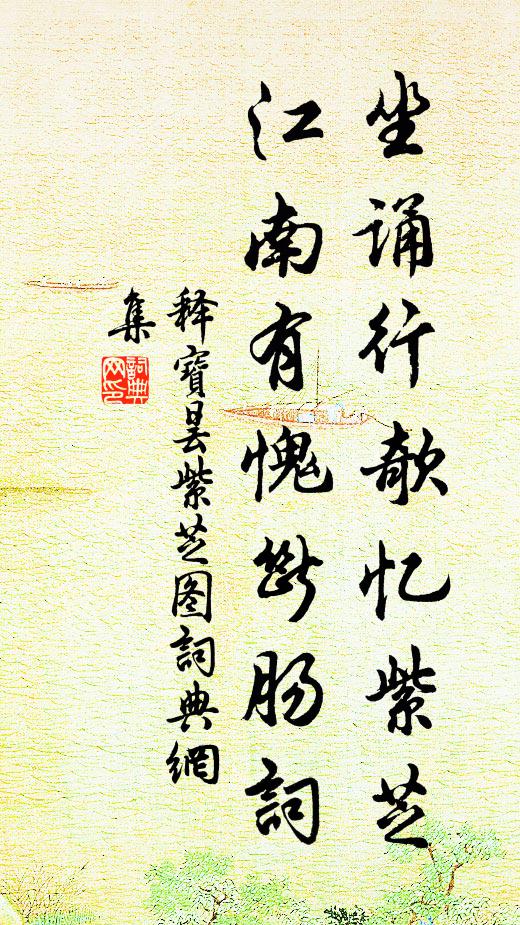 坐诵行欹忆紫芝
江南有愧断肠詞
释寶昙紫芝图詞典網
集
詞典
网印